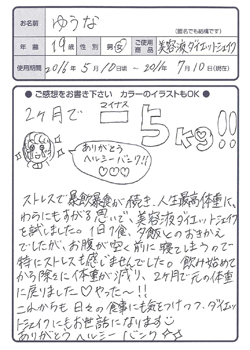 お名前 ゆうな
(匿名でも結構です)
年齢 19歳 性別 男・女 ご使用商品 美容液ダイエットシェイク
使用期間 2016年5月10日頃 ～ 2016年7月10日(現在)
●ご感想をお書き下さい カラーのイラストもOK●
2ヶ月で マイナス
－5kg!!
ありがとう
ヘルシーバンク!!
♡♡
ストレスで暴飲暴食が続き、人生最高体重に。
わらにもすがる思いで、美容液ダイエットシェイク
を試しました。1日1食、夕飯とのおきかえ
でしたが、お腹が空く前に寝てしまうので
特にストスも感じませんでした。飲み始めて
から除々に体重が減り、2ヶ月で元の体重
に戻りました♡やった～!!
これからも日々の食事にも気をつけつつ、ダイエッ
トシェイクにもお世話になります
ありがとうヘルシーバンク☆☆